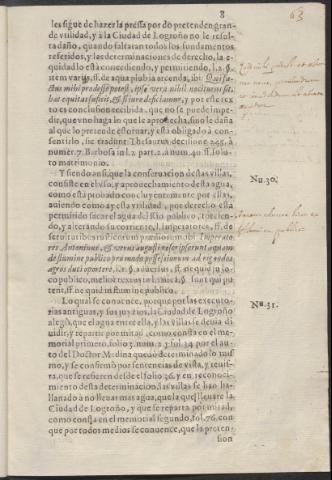 8
63
les sigue de hazer la pressa por do pretenden gran-
de vtilidad, y à la Ciudad de Logroño no le resul-
ta daño, quando faltaran todos los fundamentos
referidos, y las determinaciones de derecho, la e-
quidad lo està concediendo, y permitiendo, l. 2. §.
item varus, ff. de aqua plubia arcenda, ibi:
ctus mihi prodesse potest, ipse vero nihil nociturus sit,
hac equitas suserit, & si iure desiciamur, y por este tex
to es conclusion recebida, que no se puede impe-
dir, que vno haga lo que le aprouecha, sino le daña
al que lo pretende estoruar, y està obligado à con-
sentirlo, sic tradunt Thesaurus decisione 245. à
numer. 7. Barbosa in l. 2. part. 2. à num. 40. ff. solu-
to matrimonio.
Y siendo ansi, que la conseruacion destas villas,
consiste en el vso, y aprouechamiento desta agua,
como està probado con el vnanime por ellas,
auiendo como ay esta vtilidad, por derecho està
permitido sacar el agua del Rio publico, torcien-
do, y alterando su corriente, l. inspectores, ff. de
seruitutibus rusticorum prædiorum ibi: Imperato-
res Antoninus, & verus augusti rescripserunt aquam
de flumine publico pro modo possessionum ad rigandos
agros diuti oportere, l. 2. §. aduersus, ff. ne quid in lo-
co publico, melior textus in l. unica, §. sunt qui pu-
tent, ff. ne quid in flumine publico.
Lo qual se conuence, porque por las executo-
rias antiguas, y sus juyzios, la Ciudad de Logroño
alegò, que el agua entre ella, y las villas se deuia di-
uidir, y repartir por mitad, como consta en el me-
morial primero, folio 7. num. 2. y fol. 34. por el au-
to del Doctor Medina quedò determinado lo mis-
mo, y se confirmò por sentencias de vista, y reuis-
ta, que se refieren desde el folio 36. y en reconoci-
miento desta determinacion, las villas se han ha-
llanado à no lleuar mas agua, que la que lleuare la
Ciudad de Logroño, y que se reparta por mitad,
como consta en el memorial segundo, fol. 76. con
que por todos medios se conuence, que la preten-
sion
Nu. 30.
Nu. 31.